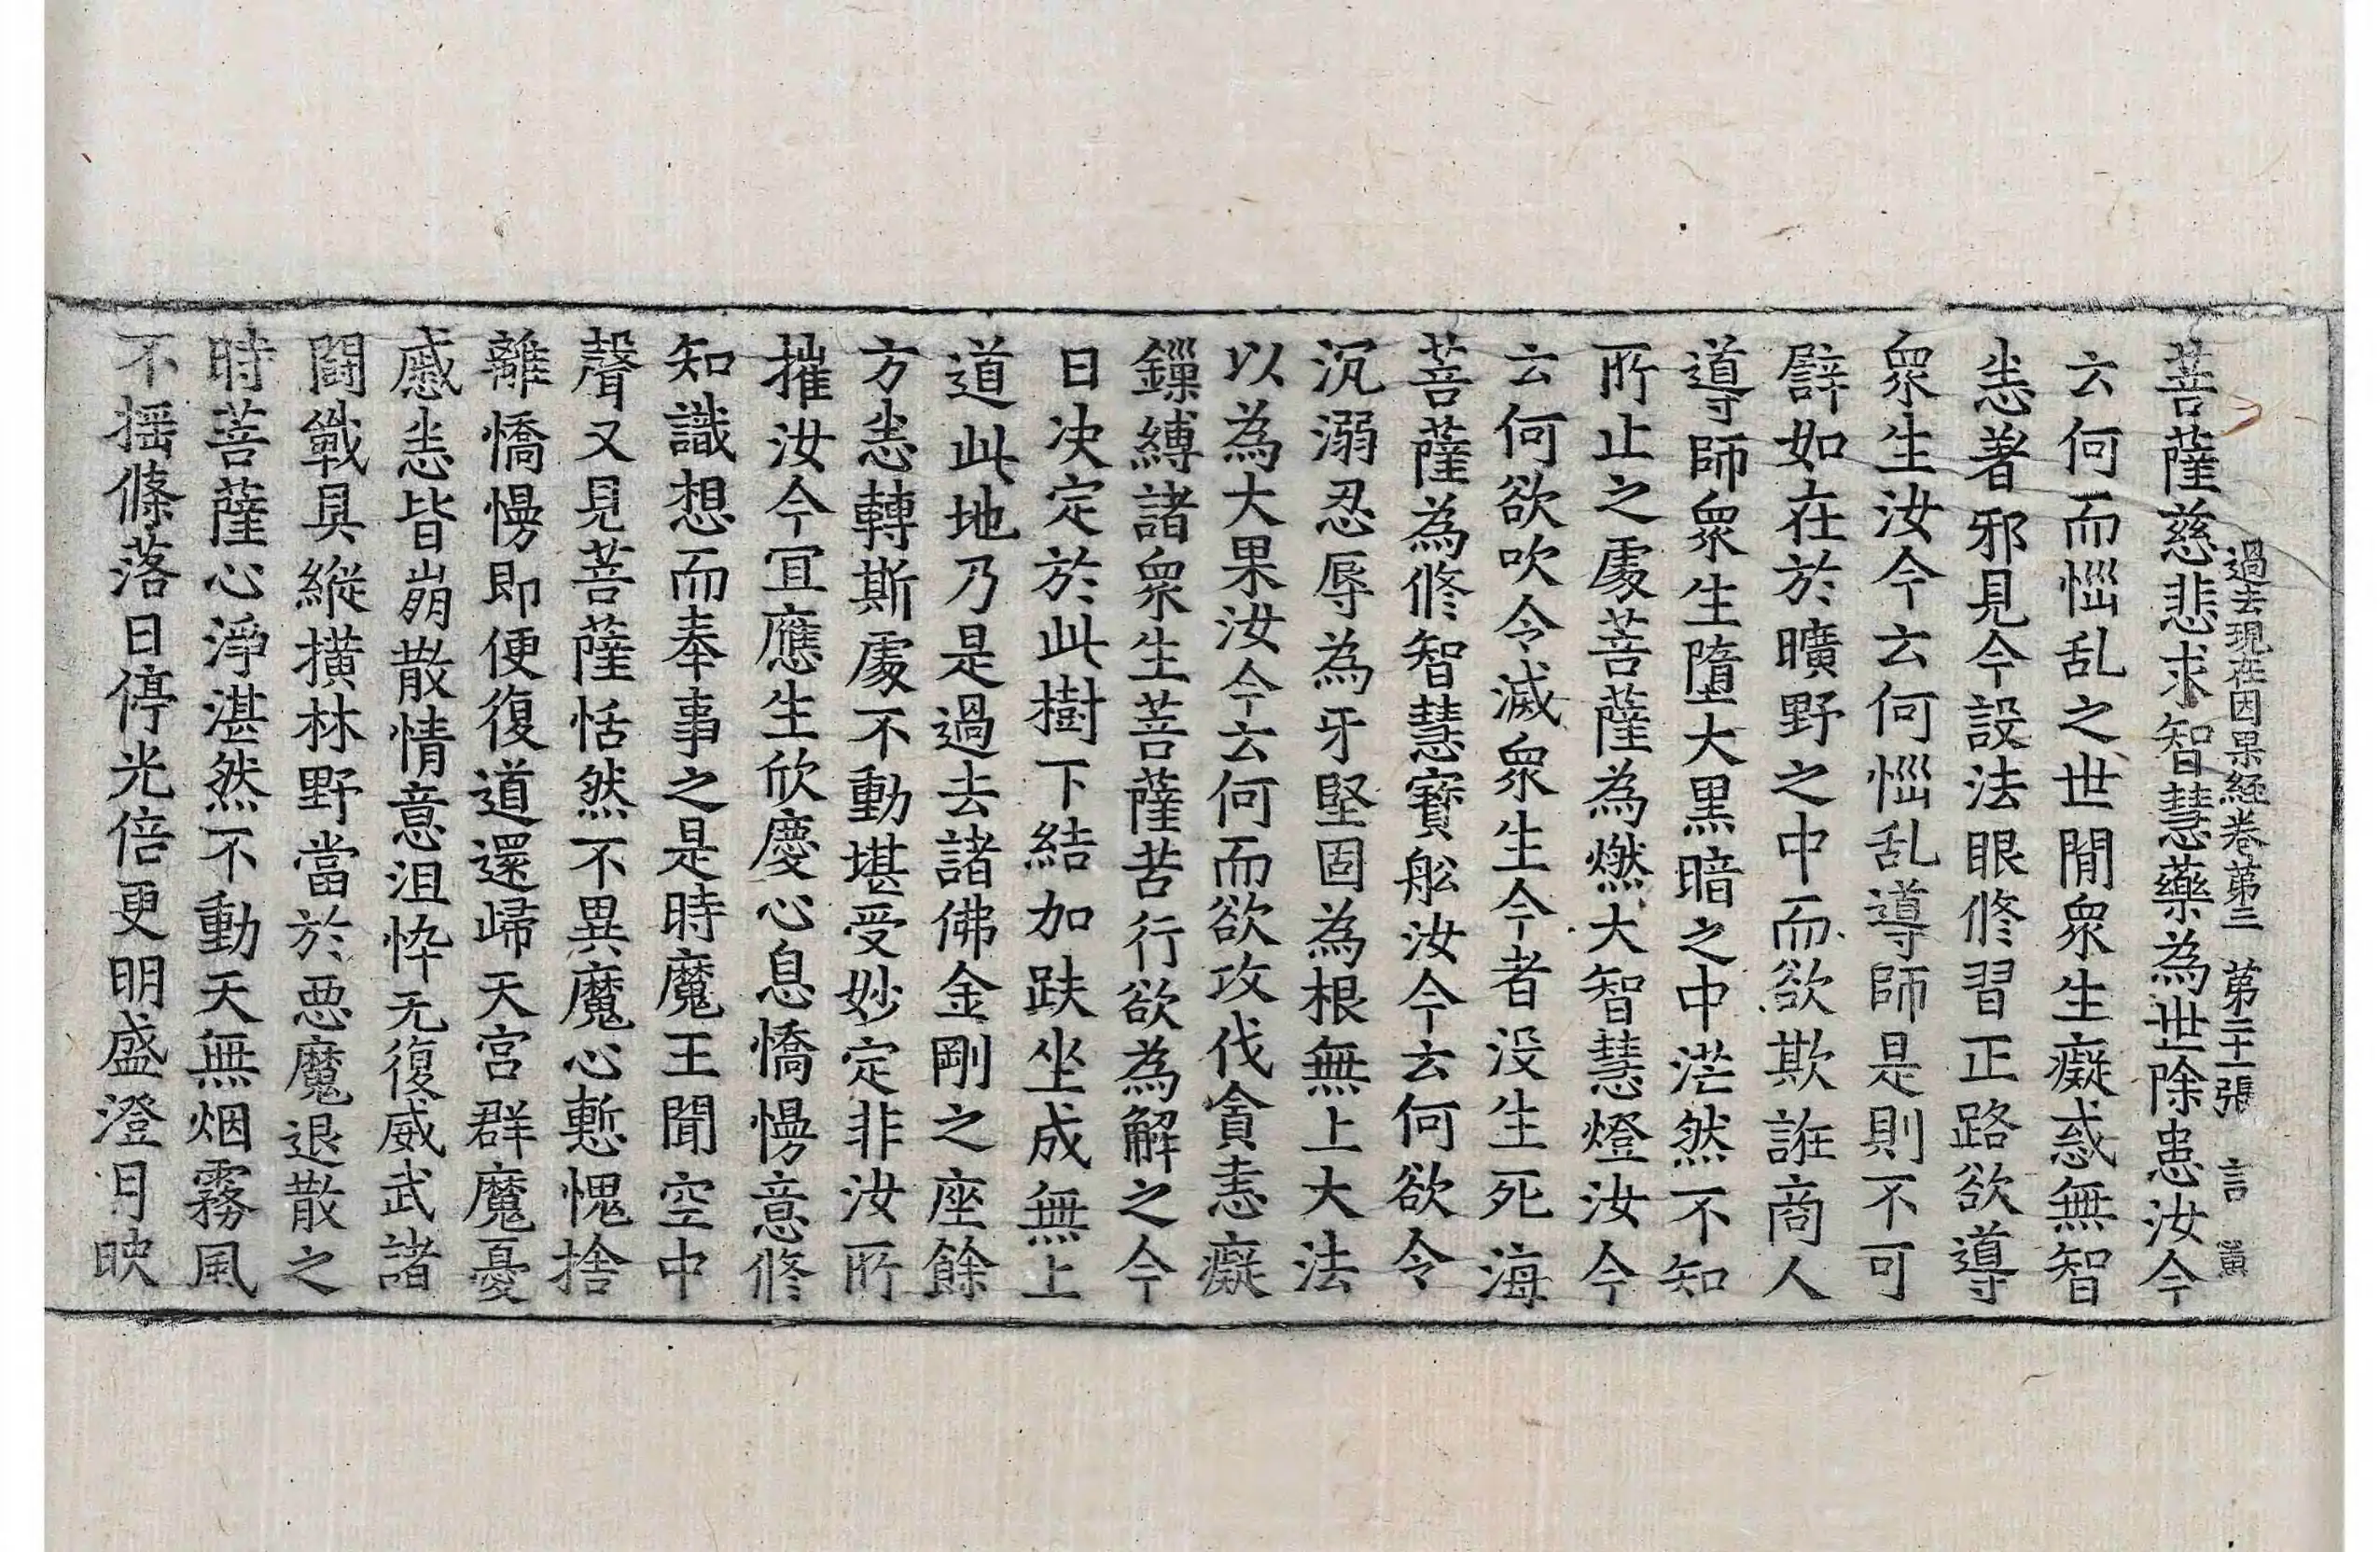 過去現在因果経卷第三 第二十一張 言 黃
菩薩慈悲求智慧藥為世除患汝今
云何而惱乱之世閒衆生癡惑無智
恙著邪見今設法眼修習正路欲導
衆生汝今云何惱乱導師是則不可
譬如在於曠野之中而欲欺誑商人
導師衆生墮大黒暗之中茫然不知
所止之處菩薩為燃大智慧燈汝今
云何欲吹令滅衆生今者没生死海
菩薩為修智慧寶舩汝今云何欲令
沉溺忍辱為牙堅固為根無上大法
以為大果汝今云何而欲攻伐貪恚癡
鏁縛諸衆生菩薩苦行欲為解之今
日决定於此樹下結加趺坐成無上
道此地乃是過去諸佛金剛之座餘
方悉轉斯處不動堪受妙定非汝所
摧汝今冝應生欣慶心息憍慢意修
知識想而奉事之是時魔王聞空中
聲又見菩薩恬然不異魔心慙愧捨
離憍慢即便復道還歸天宮群魔憂
慼悉皆崩散情意沮悴无復威武諸
鬪戰具縱撗林野當於惡魔退散之
時菩薩心淨湛然不動天無烟霧風
不揺條落日停光倍更明盛澄月映